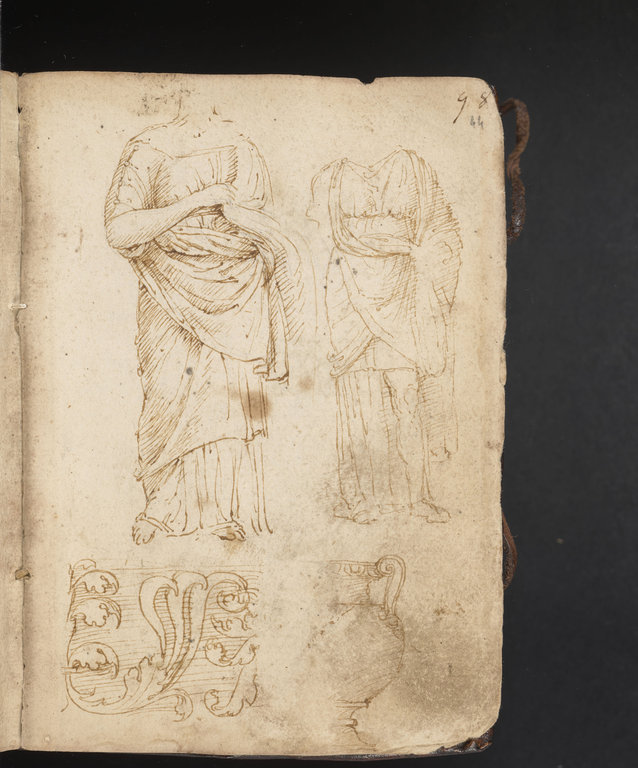 98
44